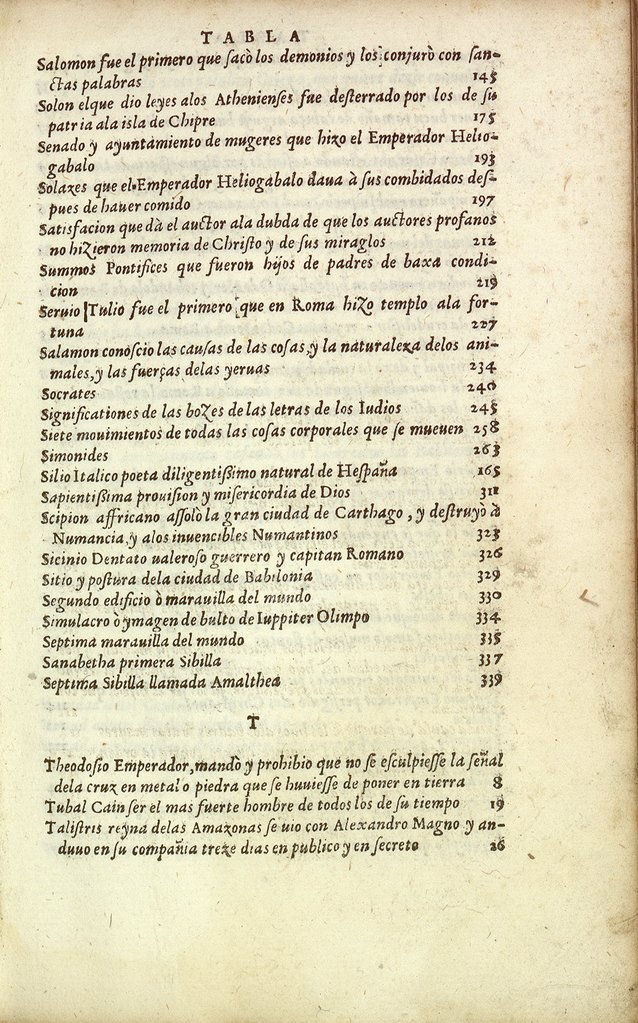 TABLA
Salomon fue el primero que sacò los demonios y los conjurò con san-
ctas palabras 145
Solon elque dio leyes alos Athenienses fue desterrado por los de su
patria ala isla de Chipre 175
Senado y ayuntamiento de mugeres que hizo el Emperador Helio-
gabalo 193
Solazes que el Emperador Heliogabalo daua à sus combidados des-
pues de hauer comido 197
Satisfacion que dà el auctor ala dubda de que los auctores profanos
no hizieron memoria de Christo y de sus miraglos 212
Summos Pontifices que fueron hijos de padres de baxa condi-
cion 219
Seruio Tulio fue el primero que en Roma hizo templo ala for-
tuna 227
Salamon conoscio las causas de las cosas, y la naturaleza delos ani-
males, y las fuerças delas yeruas 234
Socrates 240
Significationes de las bozes de las letras de los Iudios 245
Siete mouimientos de todas las cosas corporales que se mueuen 258
Simonides 263
Silio Italico poeta diligentißimo natural de Hespaña 165
Sapientißima prouision y misericordia de Dios 311
Scipion affricano assolò la gran ciudad de Carthago, y destruyò à
Numancia, y alos inuencibles Numantinos 323
Sicinio Dentato ualeroso guerrero y capitan Romano 326
Sitio y postura dela ciudad de Babilonia 329
Segundo edificio ò marauilla del mundo 330
Simulacro ò ymagen de bulto de Iuppiter Olimpo 334
Septima marauilla del mundo 335
Sanabetha primera Sibilla 337
Septima Sibilla llamada Amalthea 339
T
Theodosio Emperador, mandò y prohibio que no se esculpiesse la señal
dela cruz en metal o piedra que se huuiesse de poner en tierra 8
Tubal Cain ser el mas fuerte hombre de todos los de su tiempo 19
Talistris reyna delas Amazonas se uio con Alexandro Magno y an-
duuo en su compañia treze dias en publico y en secreto 26